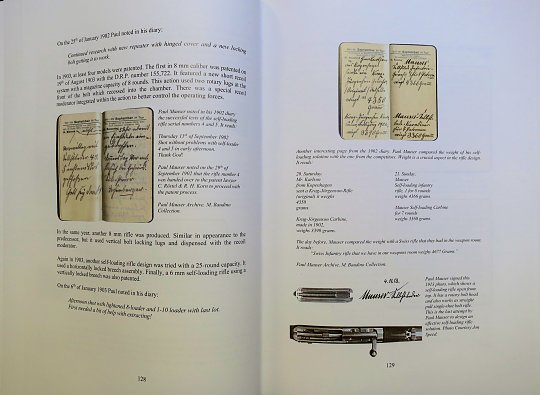 On the 25th of January 1902 Paul noted in his diary:
Continued research with new repeater with hinged cover and a new locking
bolt getting it to work.
In 1903, at least four models were patented. The first in 8 mm caliber was patented on
19th of August 1903 with the D.R.P. number 155,722. It featured a new short recoil
system with a magazine capacity of 8 rounds. This action used two rotary lugs at the
front of the bolt which recessed into the chamber. There was a special recoil
moderator integrated within the action to better control the operating forces.
Paul Mauser noted in his 1902 diary
the successful tests of the self-loading
rifle serial numbers 4 and 3. It reads:
Thursday 11th of September 1902
Shot without problems with self-loader
4 and 3 in early afternoon.
Thank God!
Paul Mauser noted on the 29th of
September 1902 that the rifle number 4
was handed over to the patent lawyer
C. Röstel & R. H. Korn to proceed with
the patent process.
Paul Mauser Archive. M. Baudino
Collection.
In the same year, another 8 mm rifle was produced. Similar in appearance to the
predecessor, but it used vertical bolt locking lugs and dispensed with the recoil
moderator.
Again in 1903, another self-loading rifle design was tried with a 25-round capacity. It
used a horizontally locked breech assembly. Finally, a 6 mm self-loading rifle using a
vertically locked breech was also patented.
On the 6th of January 1903 Paul noted in his diary:
Afternoon shot with lightened 8-loader and 1-10 loader with last lot.
First needed a bit of help with extracting!
128
Another interesting page from the 1902 diary. Paul Mauser compared the weight of his self-
loading solution with the one from the competitors. Weight is a crucial aspect in the rifle design.
It reads:
20. Saturday.
Mr. Karlson
from Kopenhagen
sent a Krag-Jørgenson-Rifle
(original) it weighs
4350
grams
Krag-Jørgenson Carbine,
made in 1902.
weighs 3390 grams.
21. Sunday.
Mauser
Self-loading infantry
rifle, 1 for 8 rounds
weight 4366 grams
Mauser Self-loading Carbine
for 7 rounds
weighs 3360 grams.
The day before, Mauser compared the weight with a Swiss rifle that they had in the weapon room.
It reads:
"Swiss Infantry rifle that we have in our weapon room weighs 4677 Grams."
Paul Mauser Archive. M. Baudino Collection.
Paul Mauser signed this
1913 photo, which shows a
self-loading rifle open from
top. It has a rotary bolt head
and also works as straight
pull single-shot bolt rifle.
This is the last attempt by
Paul Mauser to design an
effective self-loading rifle
solution. Photo Courtesy Jon
Speed.
129